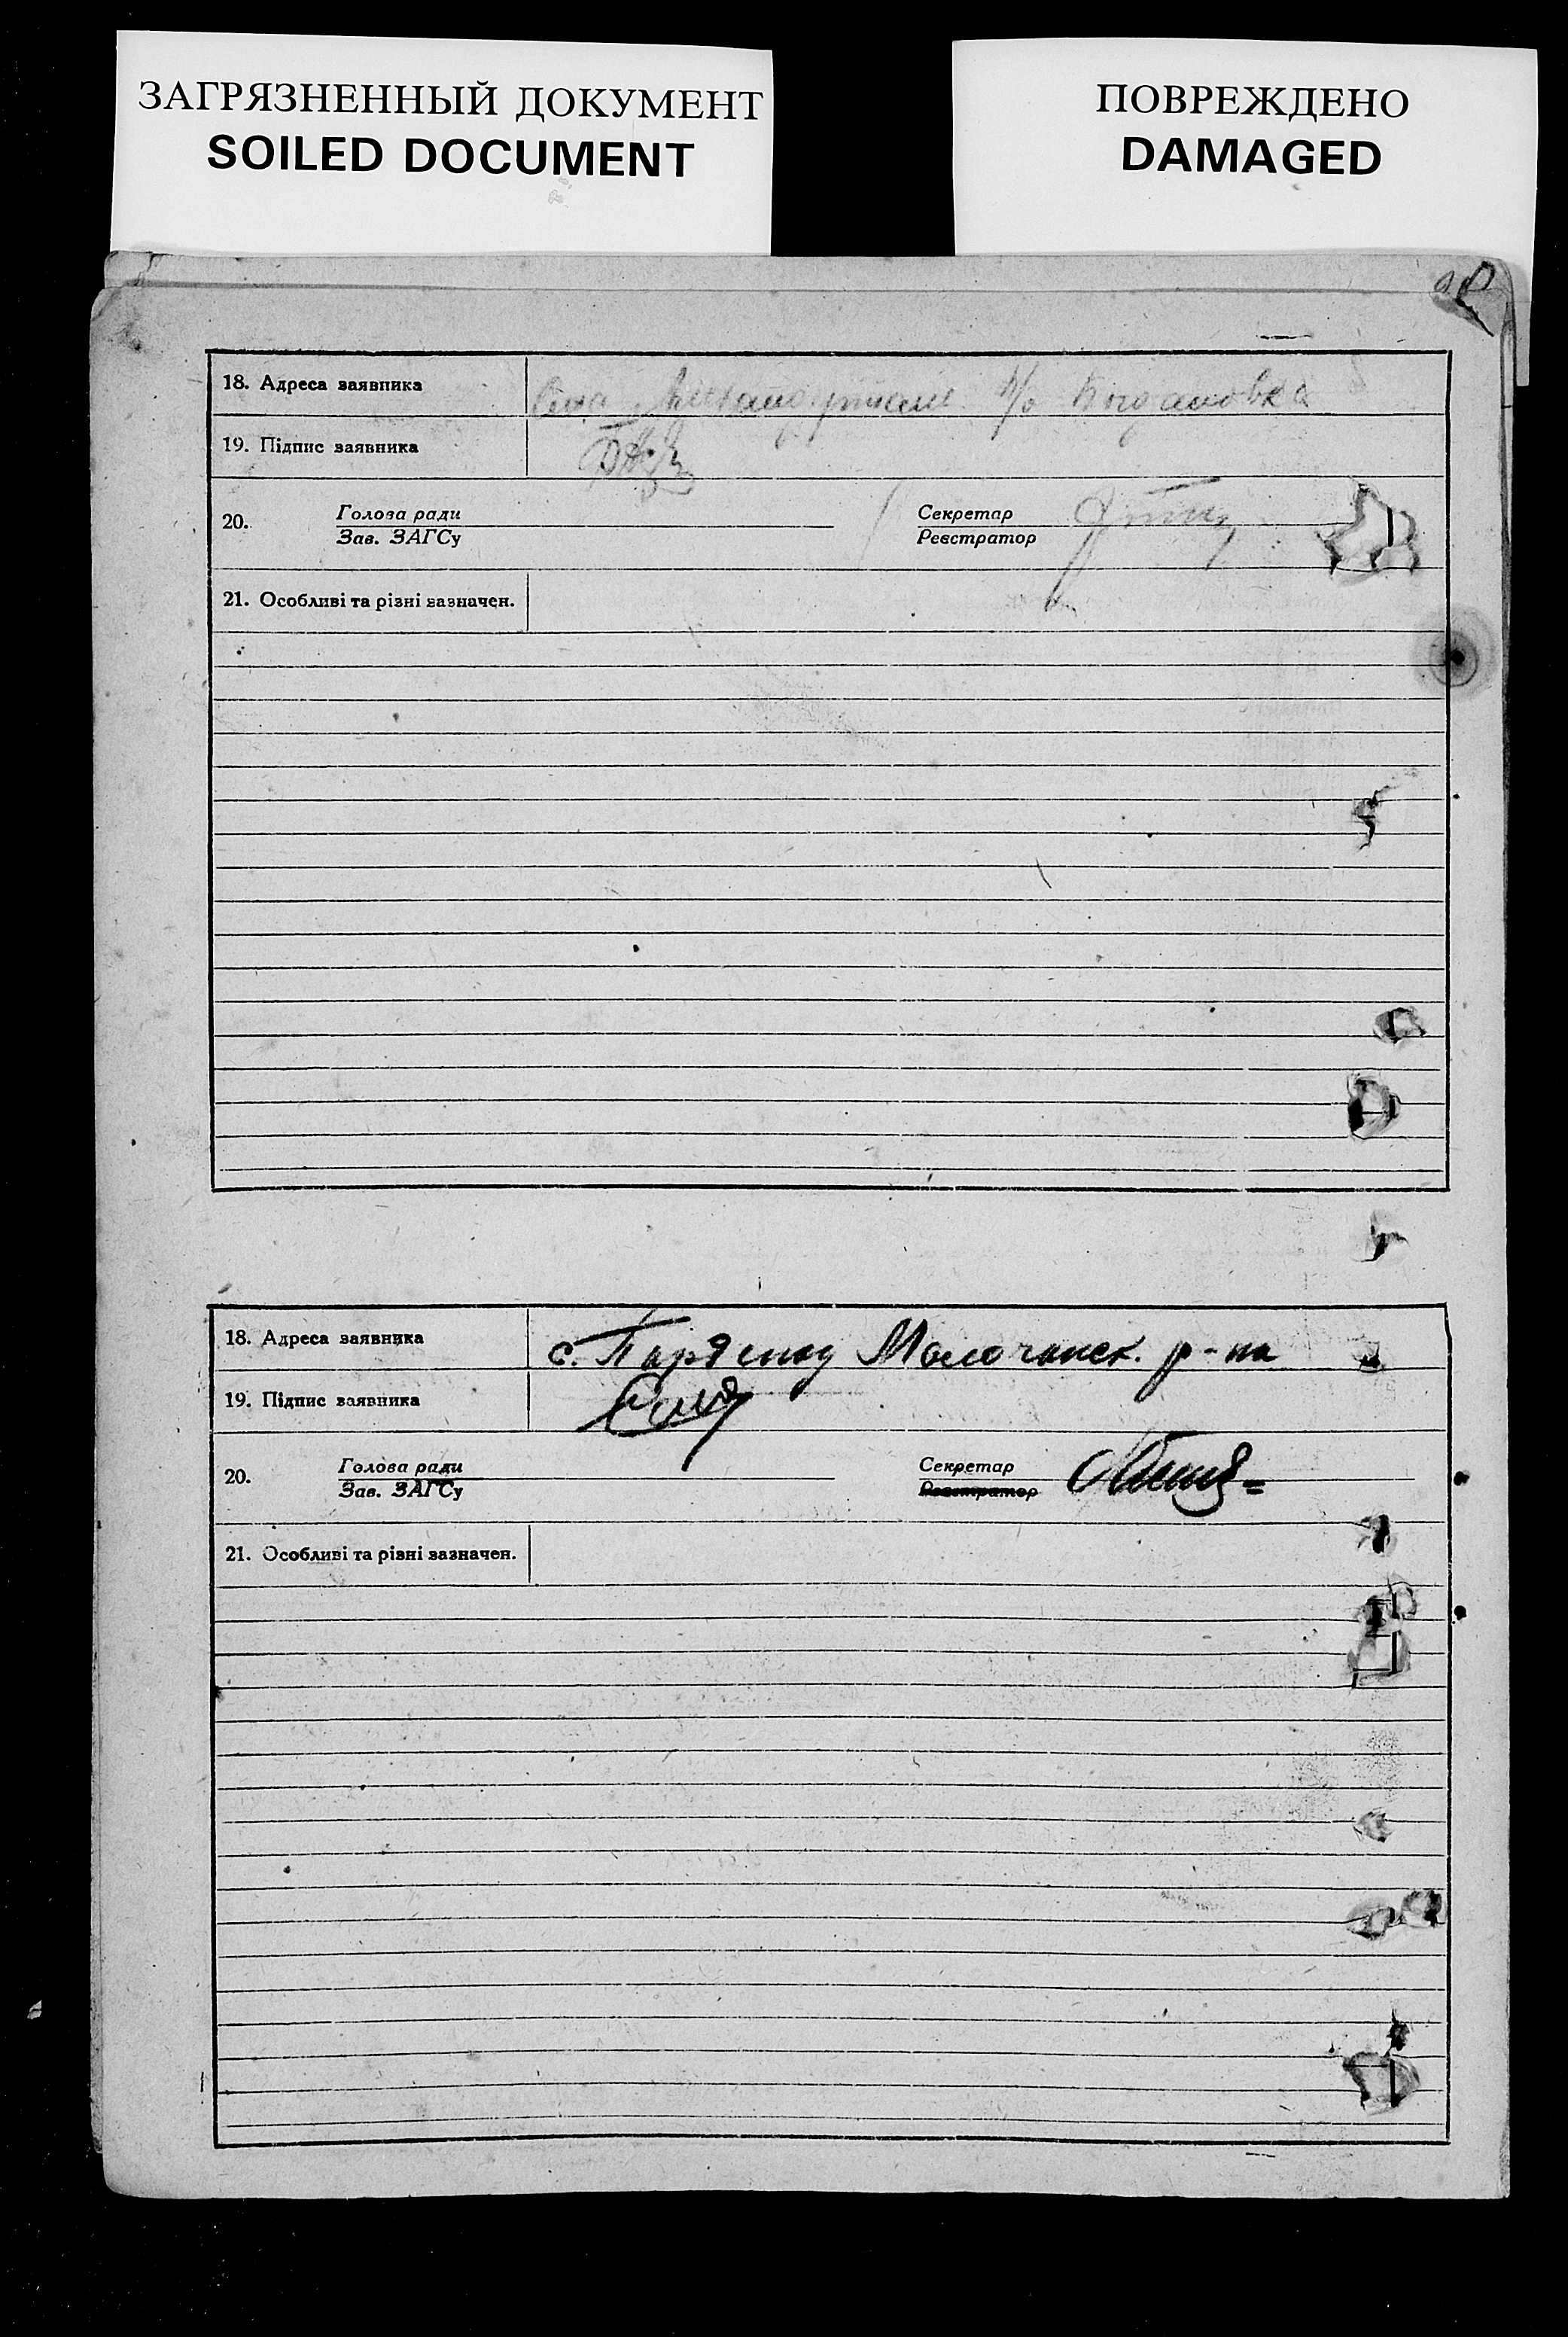 ЗАГРЯЗНЕННЫЙ ДОКУМЕНТ
SOILED DOCUMENT
ПОВРЕЖДЕНО
DAMAGED
18. Адреса заявника Богдановка
19. Підпис заявника
20. Голова ради Секретар
Зав. ЗАГСу Реєстратор
21. Особливі та різні зазначен.
18. Адреса заявника с. Молочанск. р-на
19. Підпис заявника
20. Голова ради Секретар
Зав. ЗАГСу Реєстратор
21. Особливі та різні зазначен.